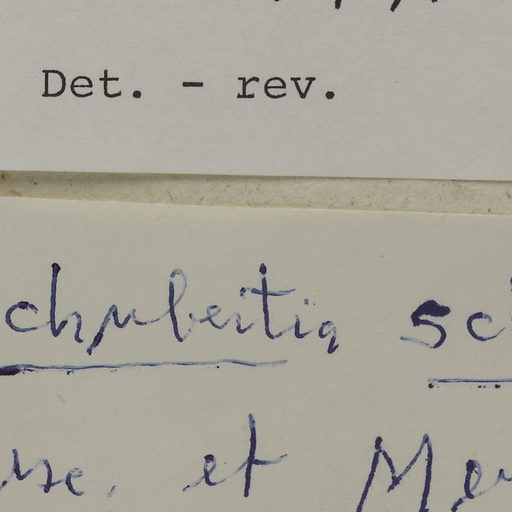 Det. - rev.
chubertia sc
et Mo